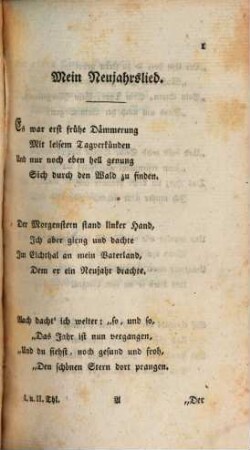 1
Mein Neujahrslied.
Es war erst frühe Dämmerung
Mit leisem Tagverkünden
Und nur noch eben hell genung
Sich durch den Wald zu finden.
Der Morgenstern stand linker Hand,
Ich aber gieng und dachte
Im Eichthal an mein Vaterland,
Dem er ein Neujahr brachte.
Auch dacht' ich weiter: „so, und so,
„Das Jahr ist nun vergangen,
„Und du siehst, noch gesund und froh,
„Den schönen Stern dort prangen.
I. u. II. Thl. A „Der